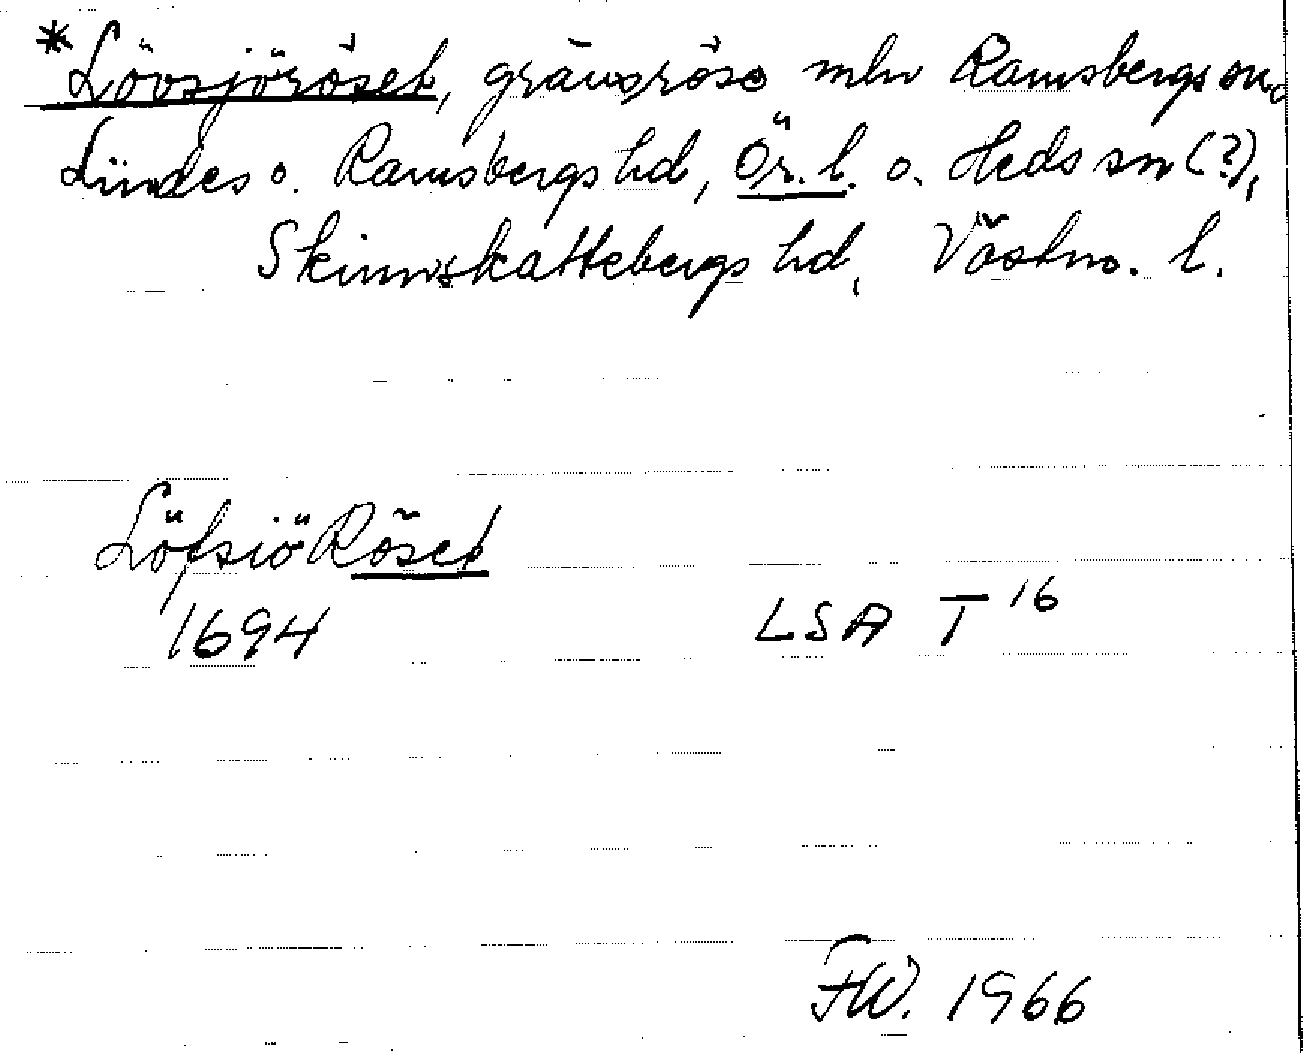 *Lövsjöröset, gränsröse mln Ramsbergs sn,
Lindes o. Ramsbergs hd, Ör. l. o. Heds sn (?),
Skinnskattebergs hd, Västm. l.
Löfsiö Röset
1694 LSA T 16
FW. 1966